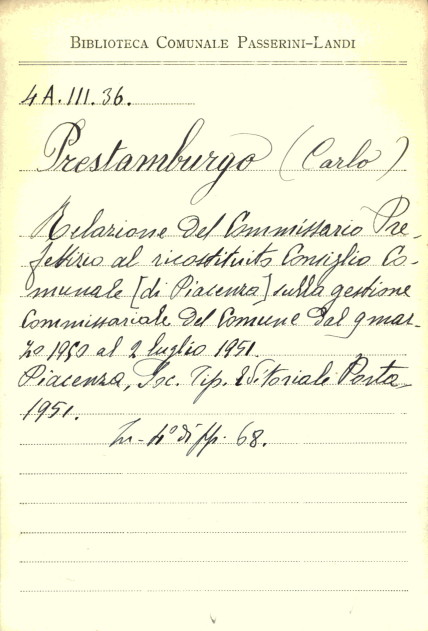 BIBLIOTECA COMUNALE PASSERINI-LANDI
4A.III.36.
Prestamburgo (Carlo)
Relazione del Commissario Pre-
fettizio al ricostituito Consiglio Co-
munale [di Piacenza] sulla gestione
Commissariale del Comune dal 9 mar-
zo 1950 al 2 luglio 1951.
Piacenza, Soc. Tip. Editoriale Porta
1951.
In-4° di pp. 68.